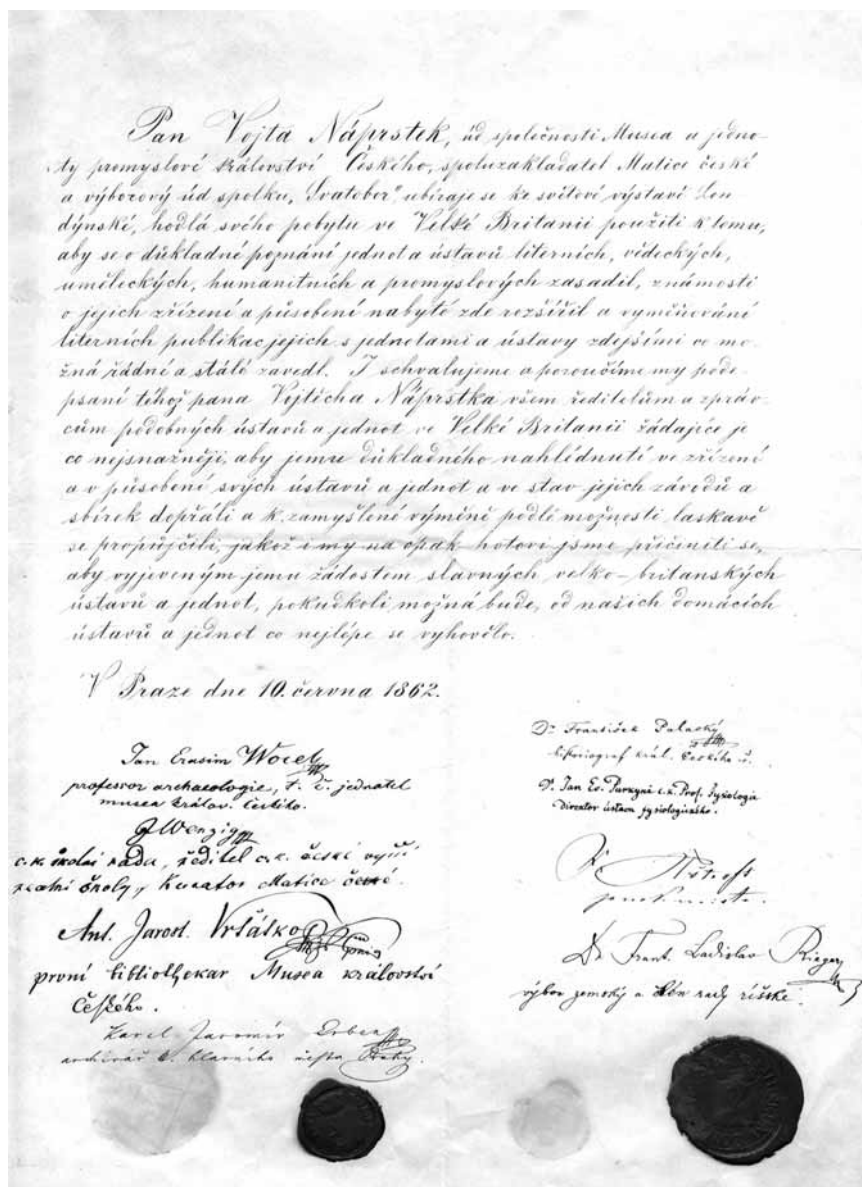 Pan Vojta Náprstek, úd společnosti Musea a jedno-
ty promyslové království Českého, spoluzakladatel Matice české
a výborový úd spolku „Svatobor“ ubíraje se ke světové výstavě Lon-
dýnské, hodlá svého pobytu ve Velké Britanii použíti k tomu,
aby se o důkladné poznání jednot a ústavů literních, vědeckých,
uměleckých, humanitních a promyslových zasadil, známosti
o jejich zřízení a působení nabyté zde rozšířil a vyměňování
literních publikac jejich s jednotami a ústavy zdejšími co mo-
žná řádné a stálé zavedl. I schvalujeme a poroučíme my pode-
psaní téhož pana Vojtěcha Náprstka všem ředitelům a správ-
cům podobných ústavů a jednot ve Velké Britanii žádajíce je
co nejsnažněji, aby jemu důkladného nahlédnutí ve zřízení
a v působení svých ústavů a jednot a ve stav jejich závodů a
sbírek dopřáli a k zamyšlené výměně podlé možnosti laskavě
se propůjčili, jakož i my na opak hotovi jsme přičiniti se,
aby vyjeveným jemu žádostem slavných velko-britanských
ústavů a jednot, pokudkoli možná bude, od našich domácích
ústavů a jednot co nejlépe se vyhovělo.
V Praze dne 10. června 1862.
Jan Erasim Wocel
professor archaeologie, t. č. jednatel
musea králov. českého.
J Wenzig
c.k. školní rada, ředitel c.k. české vyšší
realní školy, Kurator Matice české.
Ant. Jarosl. Vrťátko
první bibliothekar Musea království
Českého.
Karel Jaromír Erben
archivář k. hlavního města Prahy.
Dr František Palacký
historiograf král. Českého
Dr. Jan Ev. Purkyně c.k. Prof. fysiologie
Director ústavu fysiologického.
Dr Frant. Ladislav Rieger
výbor zemský a člen rady říšské.